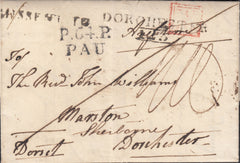 DORCHESTER
P.64.P.
PAU
To
The Revd. John Williams
Marston
Sherborne
Dorset
Dorchester